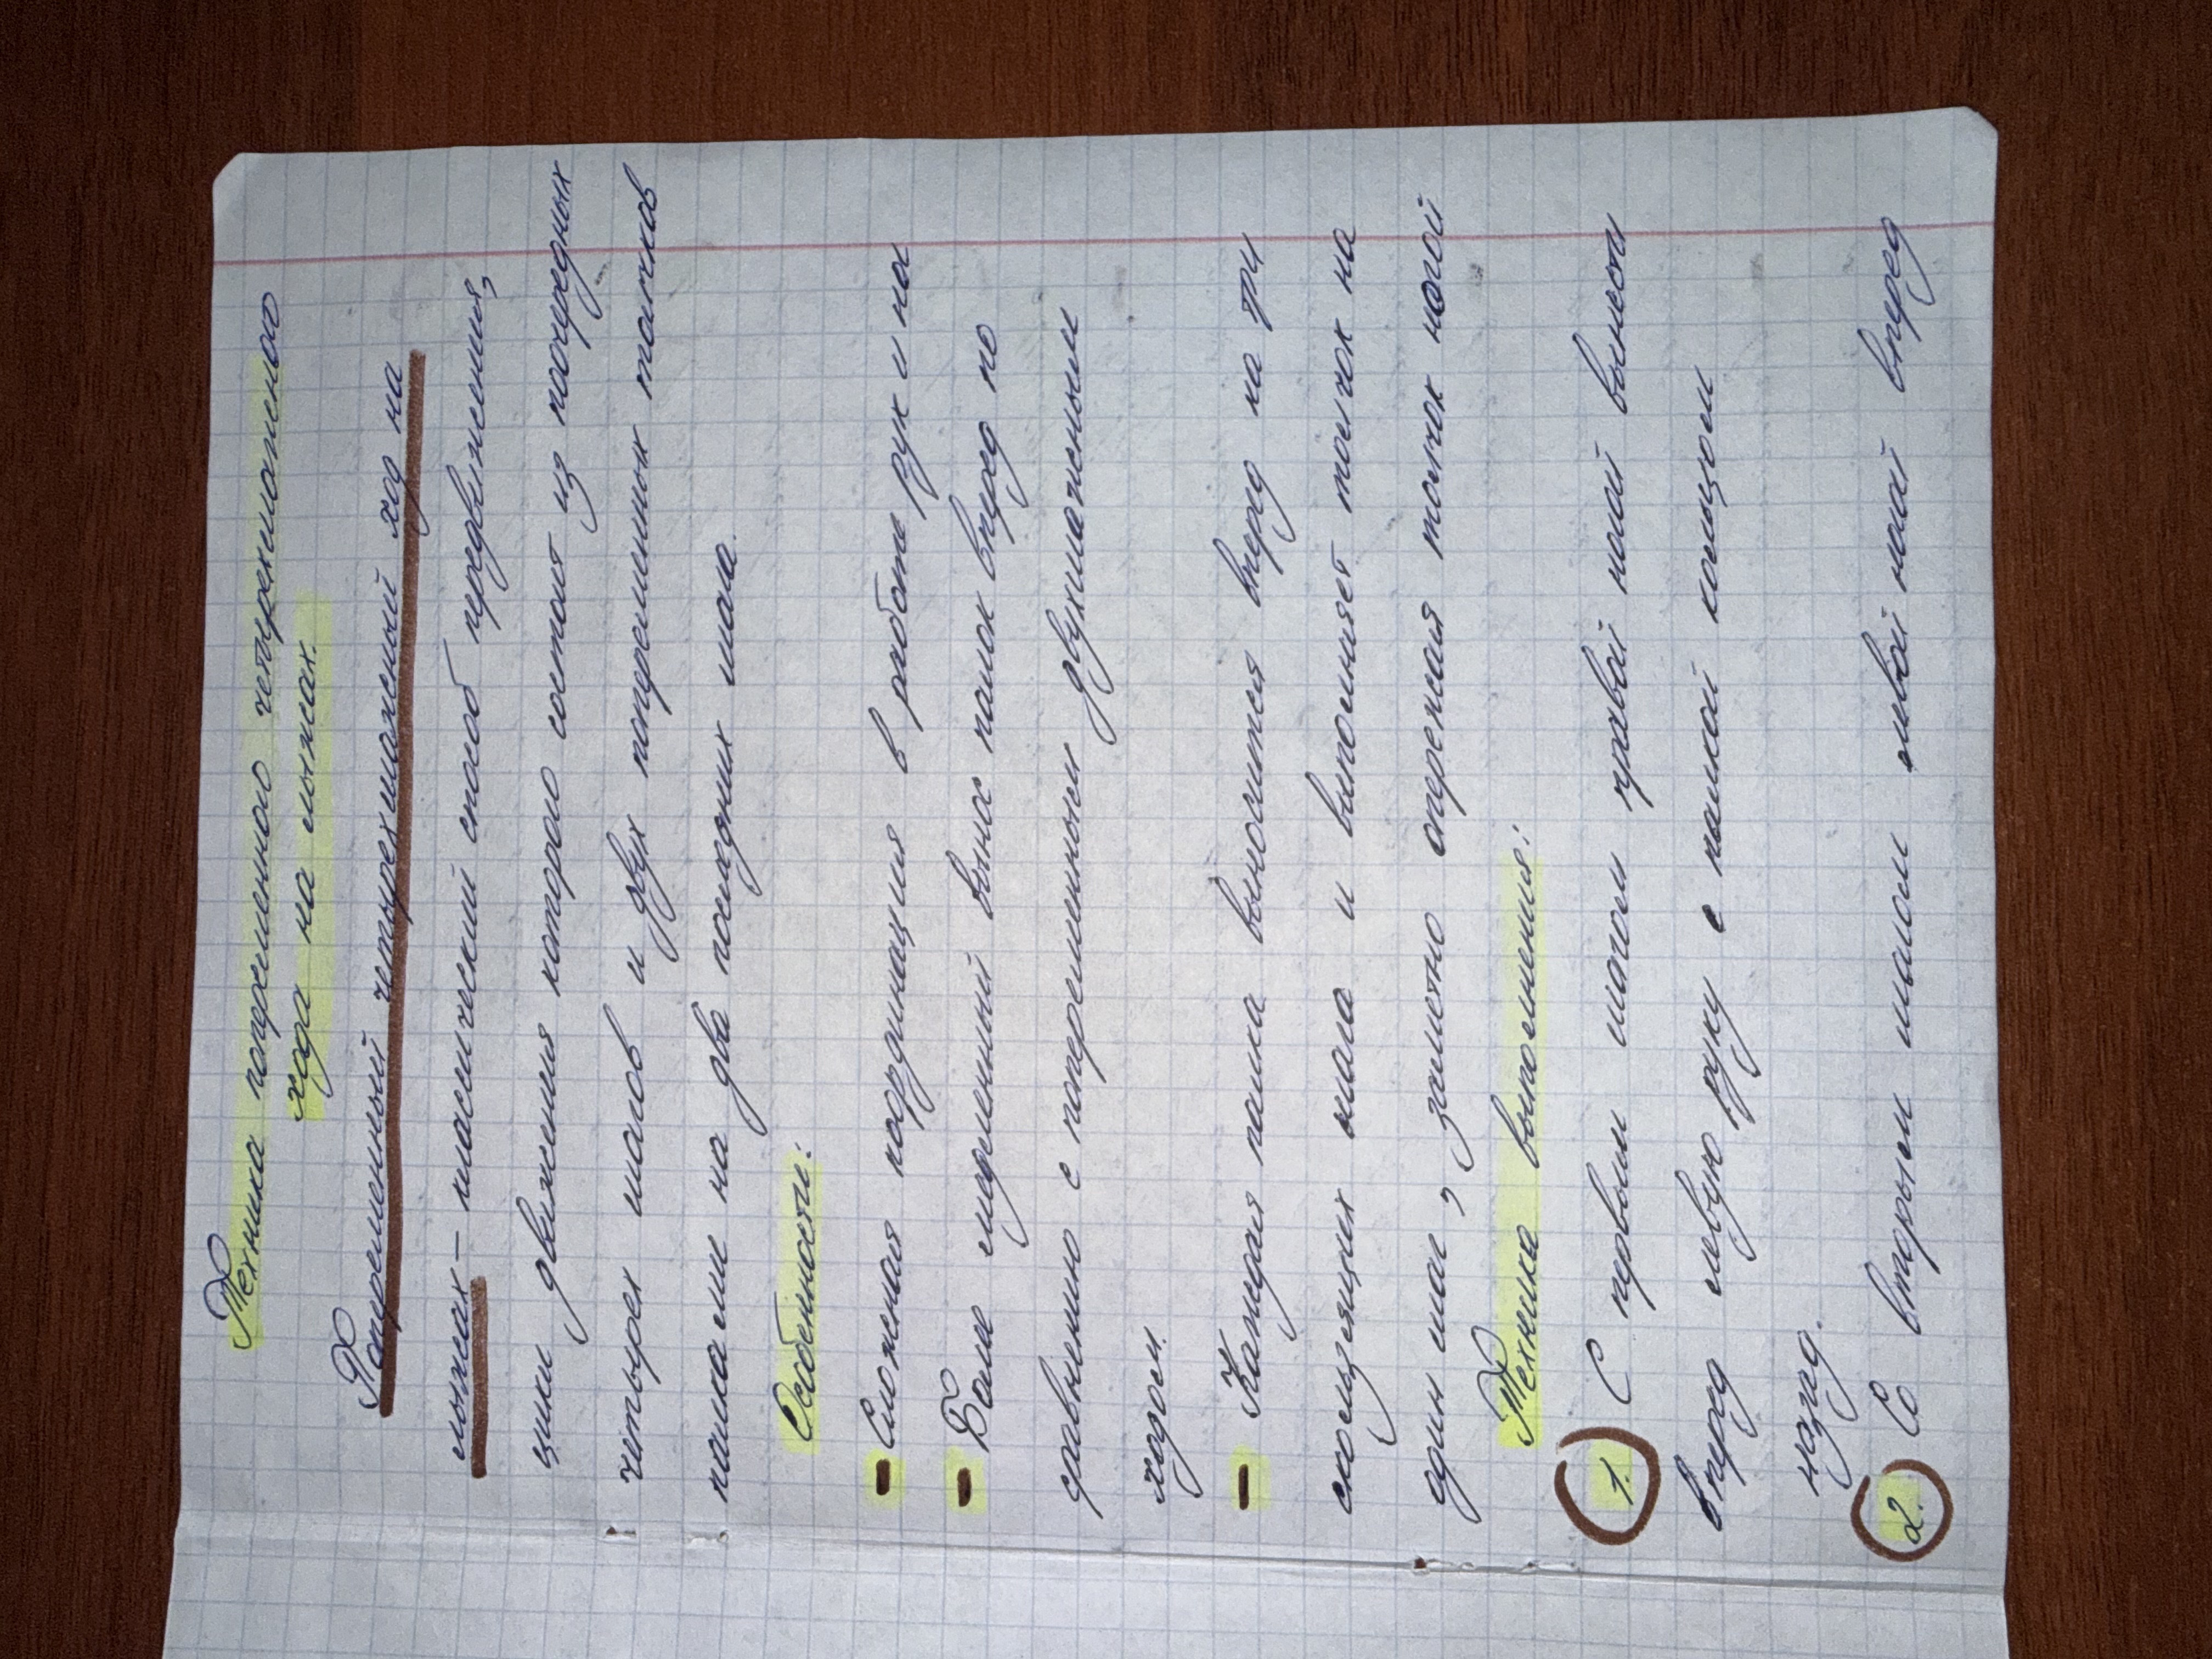 Техника попеременного четырехшажного
хода на лыжах.
Попеременный четырехшажный ход на
лыжах – классический способ передвижения,
цикл движения которого состоит из поочередных
четырех шагов и двух попеременных толчков
палками на два последних шага.
Особенности:
- Сложная координация в работе рук и ног
- Более медленный вынос палок вперед по
сравнению с попеременным двухшажным
ходом.
- Каждая палка выносится вперед на три
скользящих шага и выполняет толчок на
один шаг, заметно опережая толчок ногой
Техника выполнения:
1. С первым шагом правой ногой вынести
вперед левую руку с палкой кольцом
назад.
2. Со вторым шагом левой ногой вперед